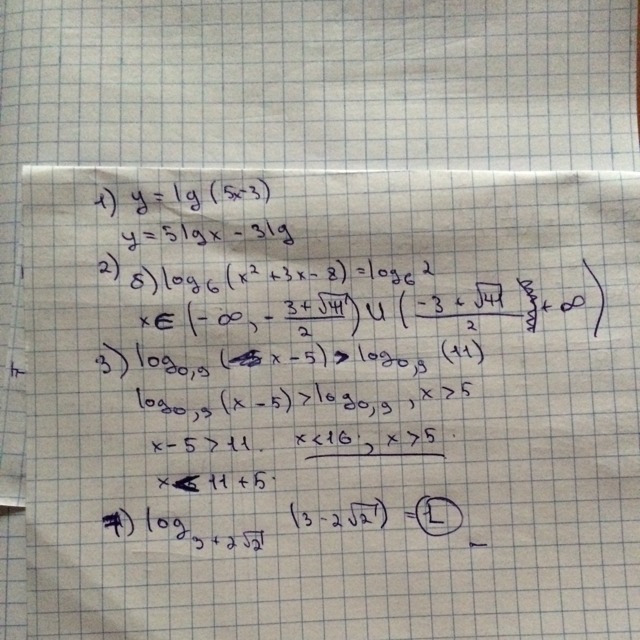 1) y = lg (5x3)
y = 5lgx - 3lg
2) б) log₆ (x² + 3x - 8) = log₆ 2
x ∈ (-∞, -\frac{3+√41}{2}) U (\frac{-3+√41}{2} + ∞)
3) log₀,₉ (x-5) > log₀,₉ (11)
log₀,₉ (x-5) > log₀,₉, x>5
x-5 > 11. x<16, x>5.
x < 11+5.
4) log₃₊₂√₂ (3-2√2) =